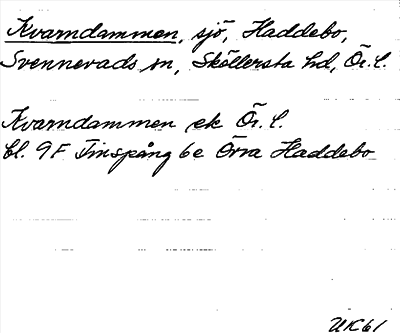 Kvarndammen, sjö, Haddebo,
Svennevads sn, Sköllersta hd, Ör. l.
Kvarndammen ek Ör. l.
bl. 9F Finspång 6e Övra Haddebo
UK61